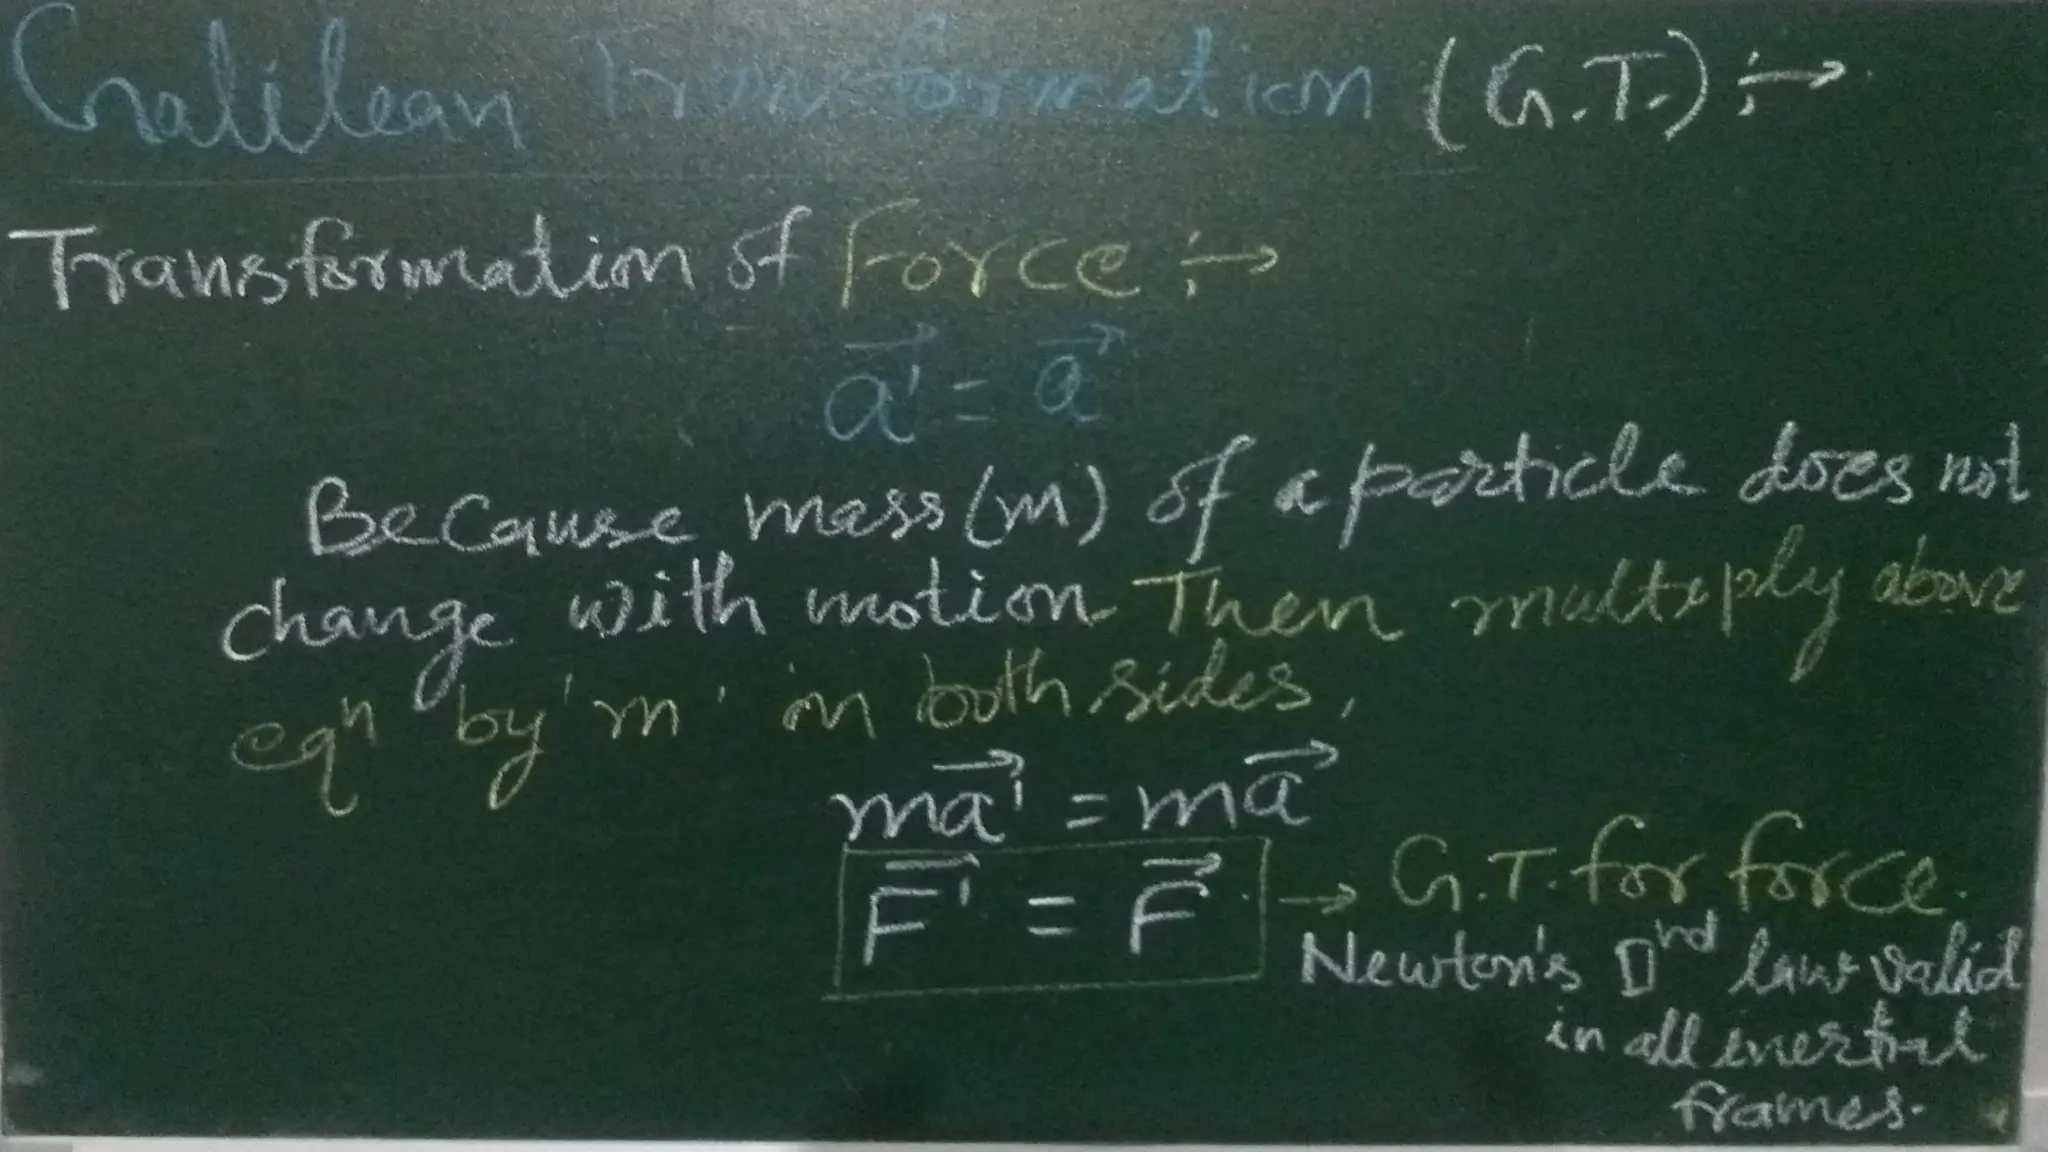 Galilean Transformation (G.T.) :→
Transformation of Force :→
a⃗' = a⃗
Because mass (m) of a particle does not
change with motion. Then multiply above
eqⁿ by 'm' in both sides,
ma⃗' = ma⃗
F⃗' = F⃗ → G.T. for force.
Newton's IInd law valid
in all inertial
frames.